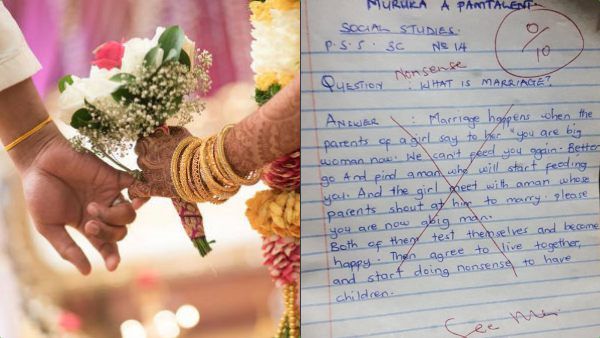 MURUKA A PAMTALENT.
SOCIAL STUDIES.
P.S.S. SC No 14
0
10
Nonsense
QUESTION : WHAT IS MARRIAGE?
ANSWER : Marriage happens when the
parents of a girl say to her "you are big
woman now. We can't feed you again. Better
go And find aman who will start feeding
you. And the girl meet with aman whose
parents shout at him to marry. please
you are now abig man.
Both of them test themselves and become
happy. Then agree to live together,
and start doing nonsense to have
children.
See Me